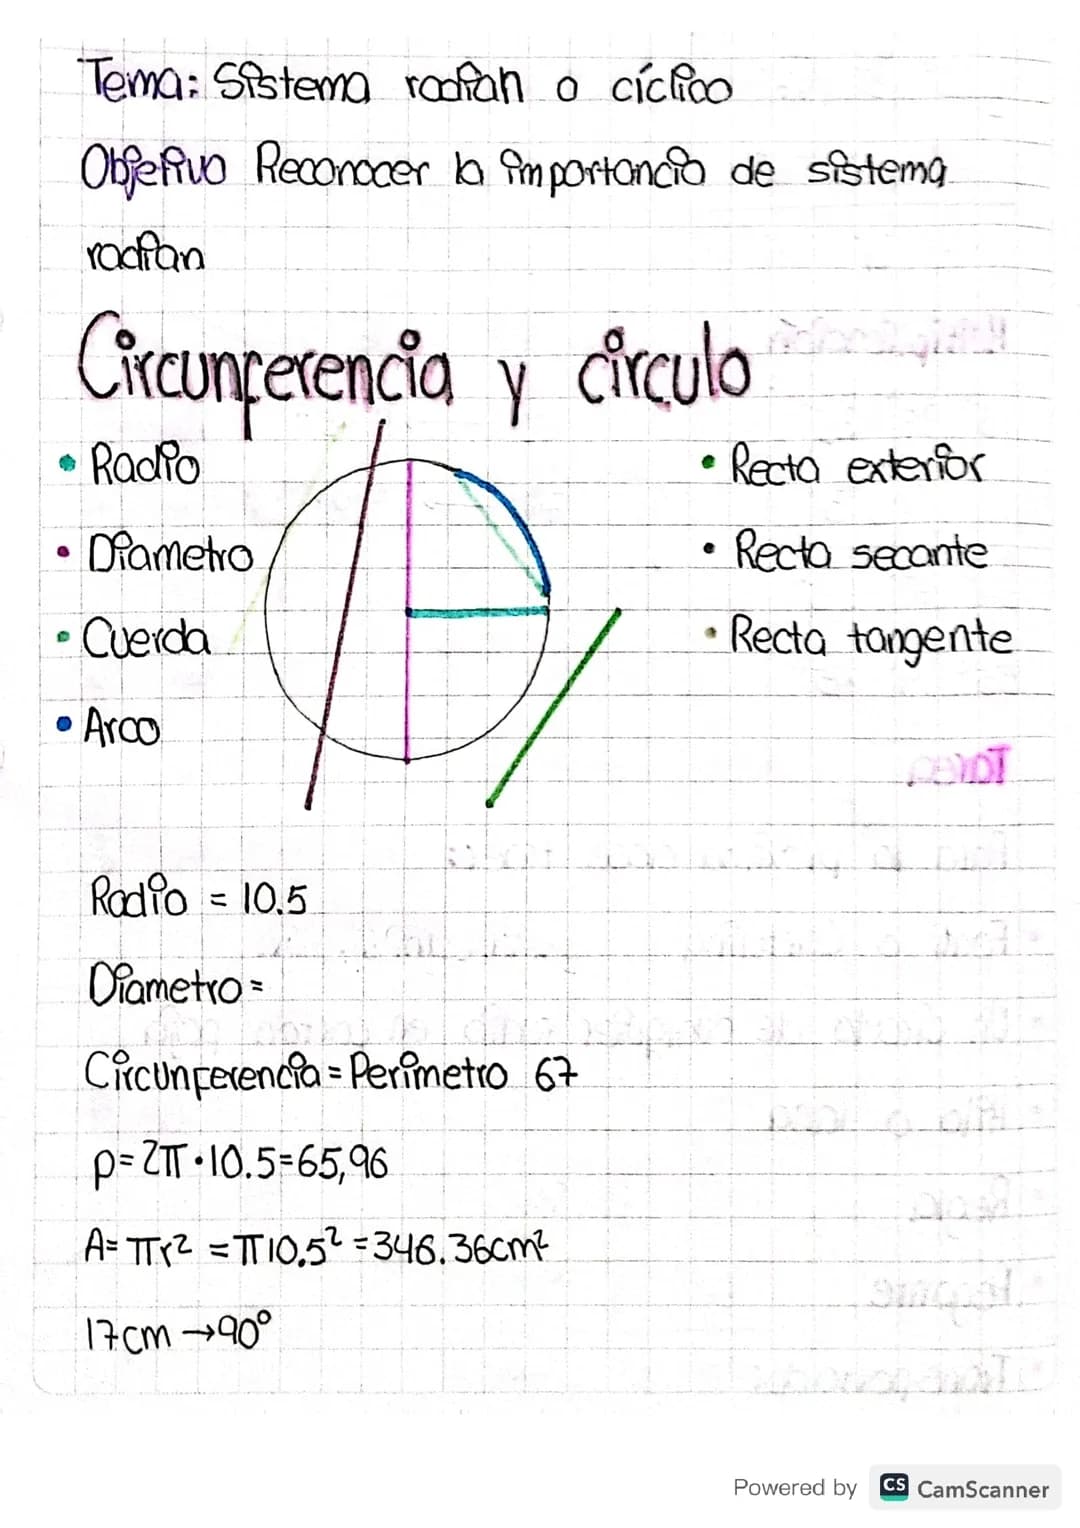 Tema: Sistema radian o cíclico
Objetivo Reconocer la importancia de sistema
radian
Circunferencia y circulo
• Radio
• Diametro
• Cuerda
• Arco
• Recta exterior
• Recta secante
• Recta tangente
Radio = 10.5
Diametro =
Circunferencia = Perimetro 67
p= 2π • 10.5=65,96
A= πr² = π10.5² = 346.36cm²
17cm → 90°
Tarea
Powered by CS CamScanner